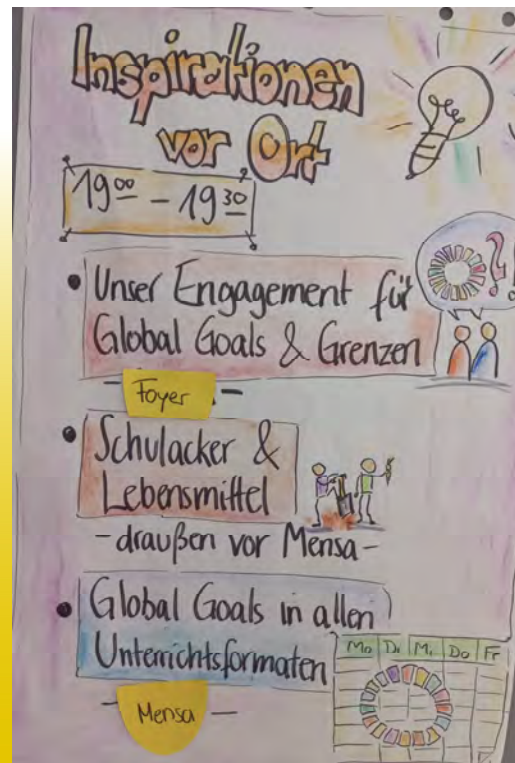 Inspirationen
vor Ort
19⁰⁰ – 19³⁰
• Unser Engagement für
Global Goals & Grenzen
– Foyer –
• Schulacker &
Lebensmittel
– draußen vor Mensa –
• Global Goals in allen
Unterrichtsformaten
Mo Di Mi Do Fr
Mensa –
?!